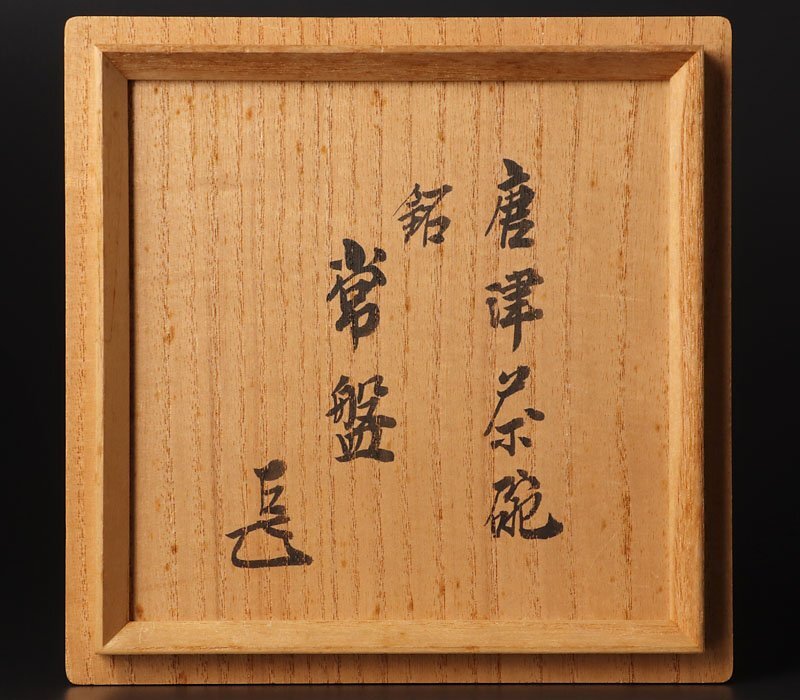 唐津茶碗
銘
常盤